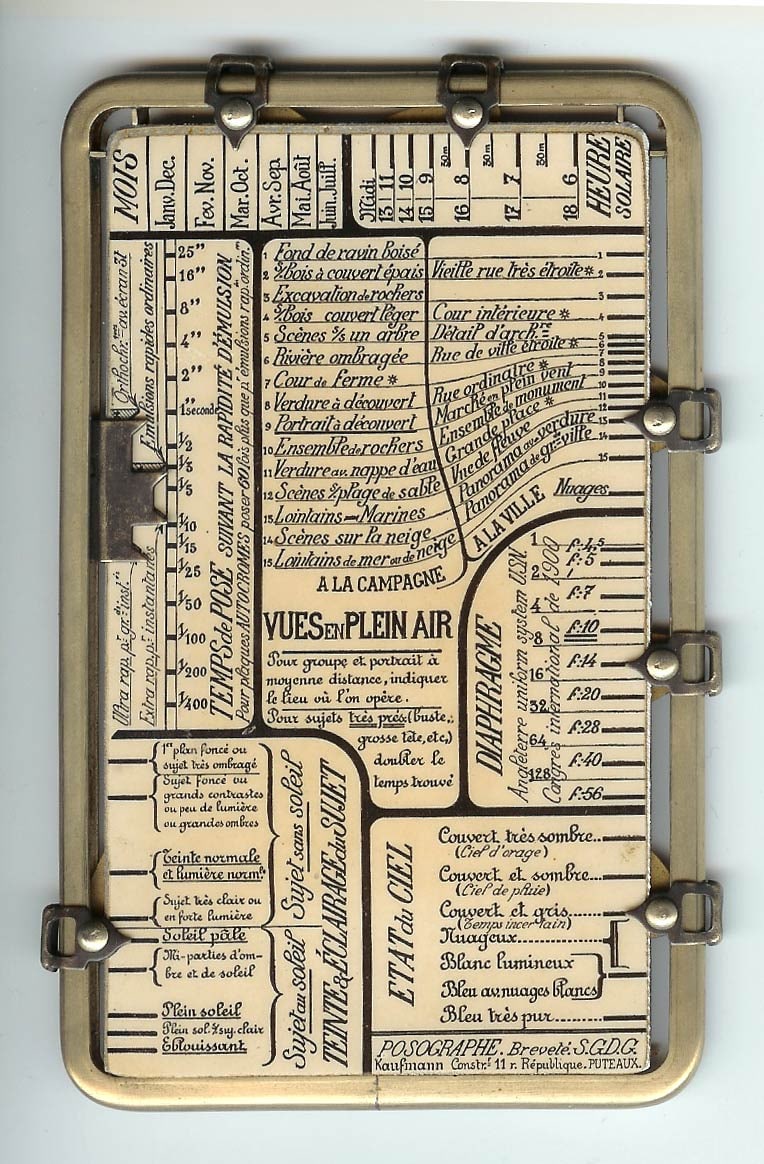 MOIS
Janv. Dec.
Fev. Nov.
Mar. Oct.
Avr. Sep.
Mai. Août
Juin. Juilt.
Midi
13 11
14 10
15 9
30m
16 8
30m
17 7
30m
18 6
HEURE
SOLAIRE
Orthochr.mes av. écran 3f
Emulsions rapides ordinaires
Ultra rap. pr. gr. inst.
Extra rap. pr. instantanés
25"
16"
8"
4"
2"
1 seconde
1/2
1/3
1/5
1/10
1/15
1/25
1/50
1/100
1/200
1/400
TEMPS de POSE SUIVANT LA RAPIDITÉ D'ÉMULSION
Pour plaques AUTOCROMES poser 60 fois plus que pr. émulsions rap. ordin.
1 Fond de ravin boisé
2 S/Bois à couvert épais
3 Excavation de rochers
4 S/Bois couvert léger
5 Scènes s/s un arbre
6 Rivière ombragée
7 Cour de ferme *
8 Verdure à découvert
9 Portrait à découvert
10 Ensemble de rochers
11 Verdure av. nappe d'eau
12 Scènes s/plage de sable
13 Lointains - Marines
14 Scènes sur la neige
15 Lointains de mer ou de neige
A LA CAMPAGNE
Vieille rue très étroite *
Cour intérieure *
Détail d'arch.re
Rue de ville étroite *
Rue ordinaire *
Marché en plein vent
Ensemble de monument
Grande place *
Vue de fleuve
Panorama avec verdure
Panorama de gde ville
Nuages
A LA VILLE
1
2
3
4
5
6
7
8
9
10
11
12
13
14
15
VUES EN PLEIN AIR
Pour groupe et portrait à
moyenne distance, indiquer
le lieu où l'on opère.
Pour sujets très près: (buste,
grosse tête, etc,)
doubler le
temps trouvé
DIAPHRAGME
Angleterre uniform system U.S.N.
Congrès international de 1900
1
2
4
8
16
32
64
128
f:4,5
f:5
f:7
f:10
f:14
f:20
f:28
f:40
f:56
1er plan foncé ou
sujet très ombragé
Sujet foncé ou
grands contrastes
ou peu de lumière
ou grandes ombres
Teinte normale
et lumière norml.
Sujet très clair ou
en forte lumière
Soleil pâle
Mi-parties d'om-
bre et de soleil
Plein soleil
Plein sol. s/suj. clair
Eblouissant
Sujet sans soleil
Sujet au soleil
TEINTE & ÉCLAIRAGE du SUJET
ETAT du CIEL
Couvert très sombre..
(Ciel d'orage)
Couvert et sombre...
(Ciel de pluie)
Couvert et gris......
(Temps incertain)
Nuageux..........
Blanc lumineux
Bleu av. nuages blancs
Bleu très pur..........
POSOGRAPHE. Breveté. S.G.D.G.
Kaufmann Constr. 11 r. République. PUTEAUX.